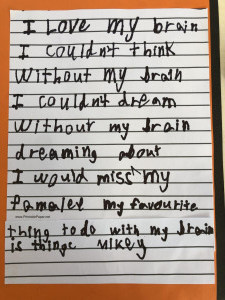 I Love my brain
I couldn't think
Without my brain
I couldn't dream
Without my brain
dreaming about
I would miss my
my favourite
thing to do with my brain
is things Mikey